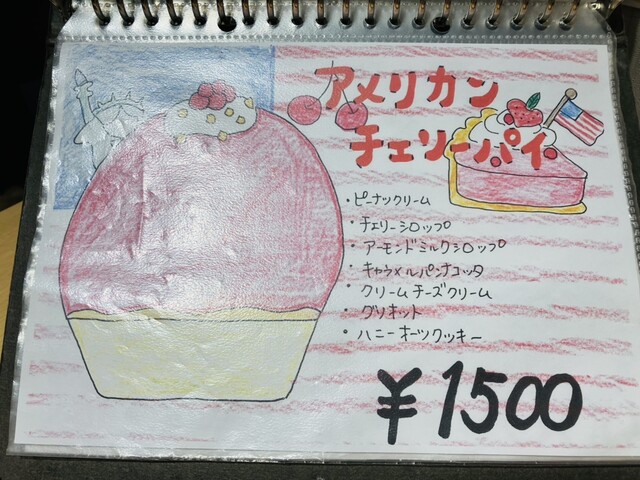 アメリカン
チェリーパイ
・ピーナックリーム
・チェリーシロップ
・アーモンドミルクシロップ
・キャラメルパンナコッタ
・クリームチーズクリーム
・グリオット
・ハニーオーツクッキー
¥1500